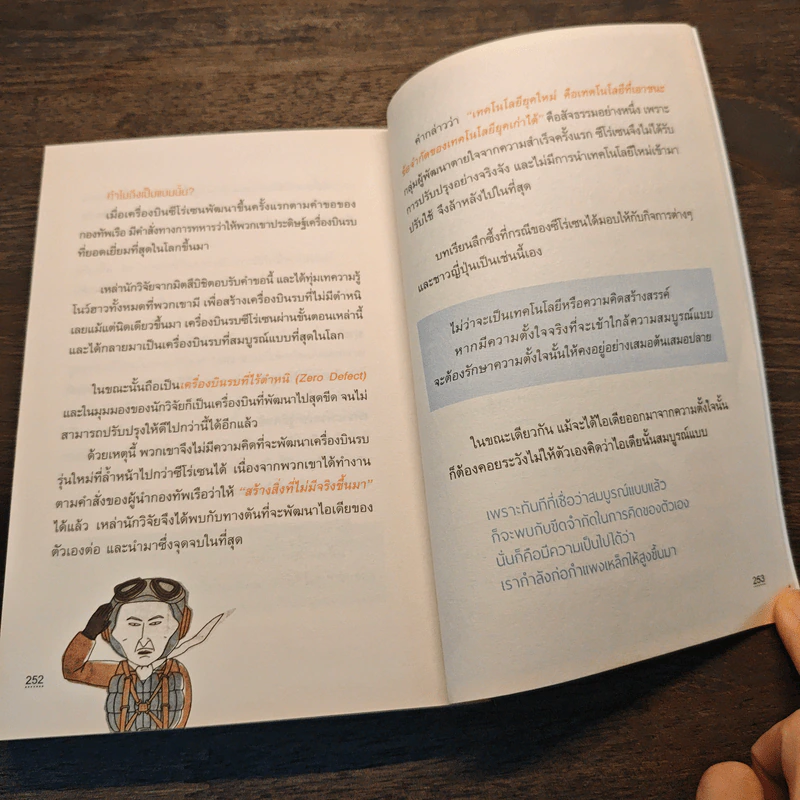 ทำไมถึงเป็นแบบนั้น?
เมื่อเครื่องบินซีโร่เซนพัฒนาขึ้นครั้งแรกตามคำขอของ
กองทัพเรือ มีคำสั่งทางการทหารว่าให้พวกเขาประดิษฐ์เครื่องบินรบ
ที่ยอดเยี่ยมที่สุดในโลกขึ้นมา
เหล่านักวิจัยจากมิตสึบิชิตอบรับคำขอนี้ และได้ทุ่มเทความรู้
โนว์ฮาวทั้งหมดที่พวกเขามี เพื่อสร้างเครื่องบินรบที่ไม่มีตำหนิ
เลยแม้แต่นิดเดียวขึ้นมา เครื่องบินรบซีโร่เซนผ่านขั้นตอนเหล่านี้
และได้กลายมาเป็นเครื่องบินรบที่สมบูรณ์แบบที่สุดในโลก
ในขณะนั้นถือเป็นเครื่องบินรบที่ไร้ตำหนิ (Zero Defect)
และในมุมมองของนักวิจัยก็เป็นเครื่องบินที่พัฒนาไปสุดขีด จนไม่
สามารถปรับปรุงให้ดีไปกว่านี้ได้อีกแล้ว
ด้วยเหตุนี้ พวกเขาจึงไม่มีความคิดที่จะพัฒนาเครื่องบินรบ
รุ่นใหม่ที่ล้ำหน้าไปกว่าซีโร่เซนได้ เนื่องจากพวกเขาได้ทำงาน
ตามคำสั่งของผู้นำกองทัพเรือว่าให้ "สร้างสิ่งที่ไม่มีจริงขึ้นมา"
ได้แล้ว เหล่านักวิจัยจึงได้พบกับทางตันที่จะพัฒนาไอเดียของ
ตัวเองต่อ และนำมาซึ่งจุดจบในที่สุด
252
คำกล่าวว่า "เทคโนโลยียุคใหม่ คือเทคโนโลยีที่เอาชนะ
ข้อจำกัดของเทคโนโลยียุคเก่าได้" คือสัจธรรมอย่างหนึ่ง เพราะ
กลุ่มผู้พัฒนาตายใจจากความสำเร็จครั้งแรก ซีโร่เซนจึงไม่ได้รับ
การปรับปรุงอย่างจริงจัง และไม่มีการนำเทคโนโลยีใหม่เข้ามา
ปรับใช้ จึงล้าหลังไปในที่สุด
บทเรียนลึกซึ้งที่กรณีของซีโร่เซนได้มอบให้กับกิจการต่างๆ
และชาวญี่ปุ่นเป็นเช่นนี้เอง
ไม่ว่าจะเป็นเทคโนโลยีหรือความคิดสร้างสรรค์
หากมีความตั้งใจจริงที่จะเข้าใกล้ความสมบูรณ์แบบ
จะต้องรักษาความตั้งใจนั้นให้คงอยู่อย่างเสมอต้นเสมอปลาย
ในขณะเดียวกัน แม้จะได้ไอเดียออกมาจากความตั้งใจนั้น
ก็ต้องคอยระวังไม่ให้ตัวเองคิดว่าไอเดียนั้นสมบูรณ์แบบ
เพราะทันทีที่เชื่อว่าสมบูรณ์แบบแล้ว
ก็จะพบกับขีดจำกัดในการคิดของตัวเอง
นั่นก็คือมีความเป็นไปได้ว่า
เรากำลังก่อกำแพงเหล็กให้สูงขึ้นมา
253